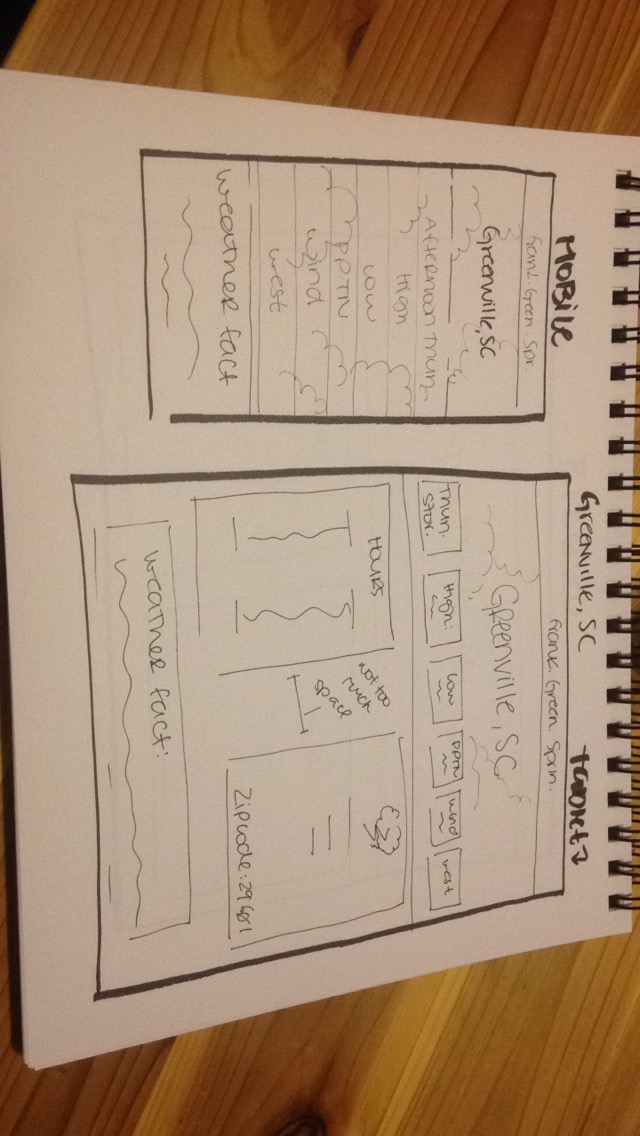 MOBile
Frank. Green. Spr.
Greenville, SC
Afternoon Thun.
High
Low
PPTN
wind
west
Weather fact
Greenville, SC
Frank. Green. Sprin.
Greenville, SC
Thun. Stor.
High:
Low
PPTN
wind
west
HOURS
not too
much
space
Zipcode: 29681
Weather fact: